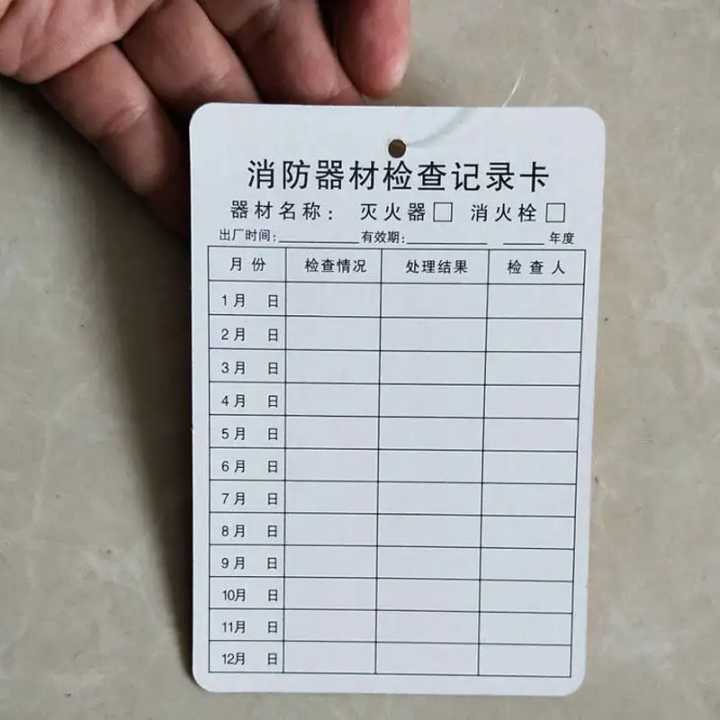 消防器材检查记录卡
器材名称： 灭火器□ 消火栓□
出厂时间:________ 有效期:________ ____年度
月 份 检查情况 处理结果 检 查 人
1月 日
2月 日
3月 日
4月 日
5月 日
6月 日
7月 日
8月 日
9月 日
10月 日
11月 日
12月 日